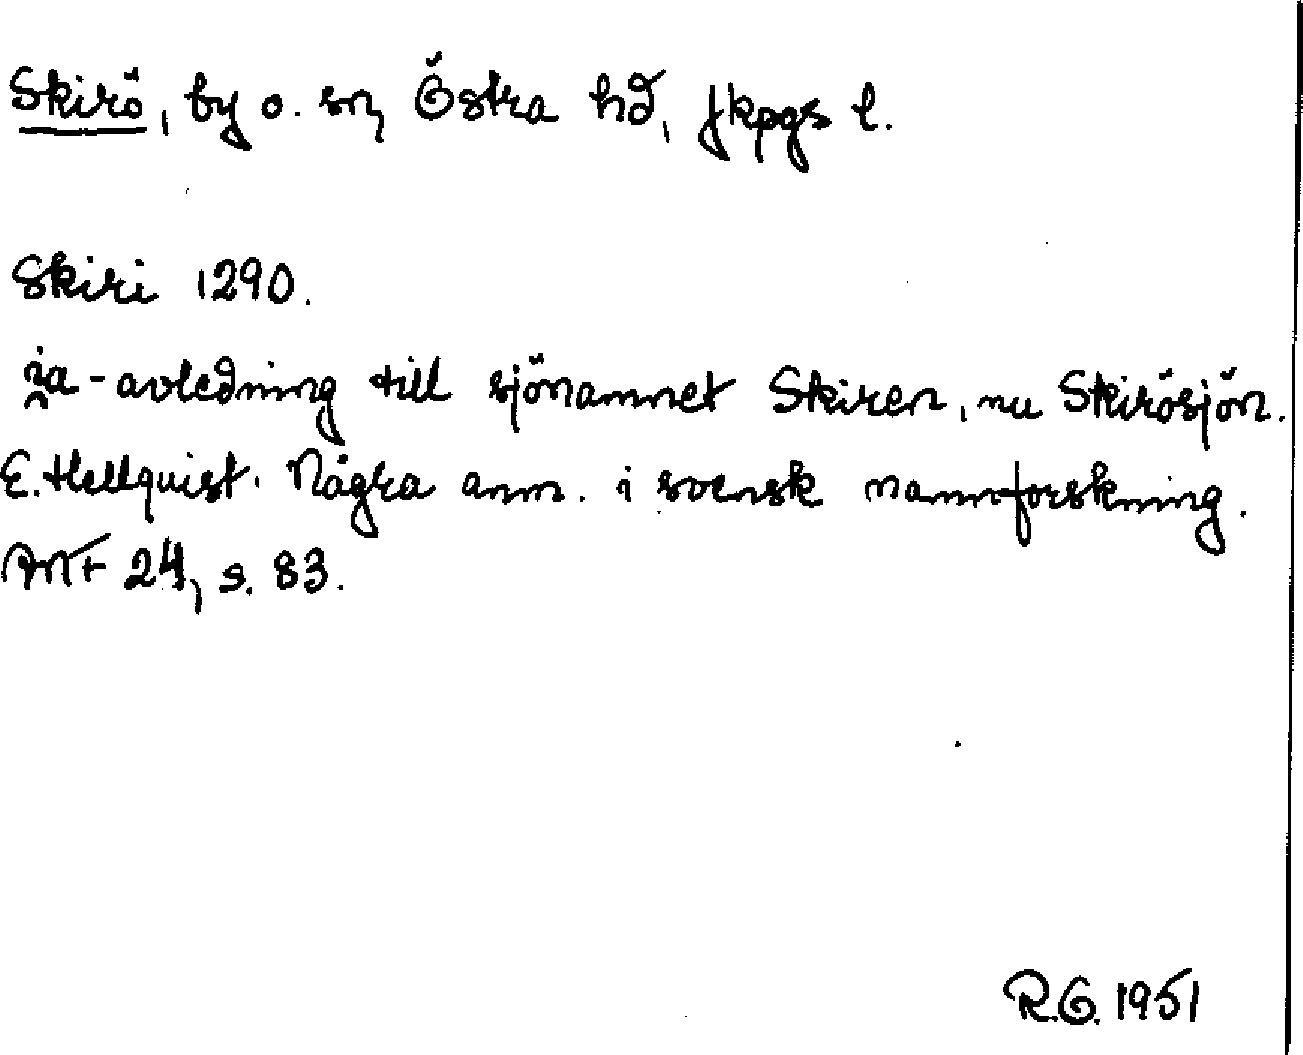 Skirö, by o. sn, Östra hd, Jkpgs l.
Skiri 1290.
i̯a-avledning till sjönamnet Skiren, nu Skirösjön.
E. Hellquist. Några anm. i svensk namnforskning.
ANF 24, s. 83.
R.G. 1951